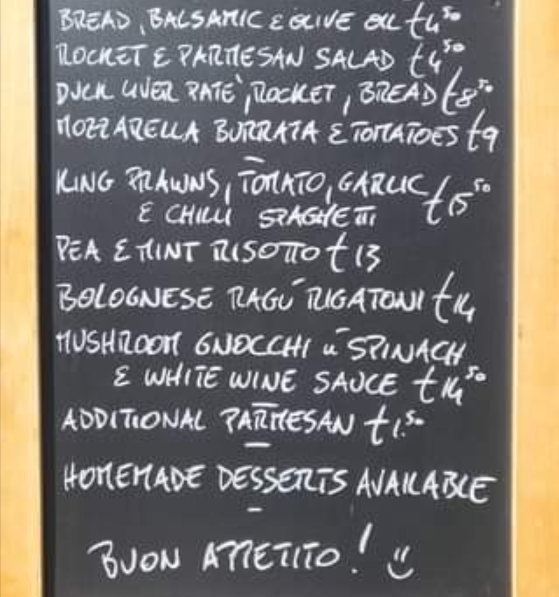 BREAD, BALSAMIC & OLIVE OIL £4.50
ROCKET & PARMESAN SALAD £4.50
DUCK LIVER PATE', ROCKET, BREAD £8.50
MOZZARELLA BURRATA & TOMATOES £9
KING PRAWNS, TOMATO, GARLIC £15.50
& CHILLI SPAGHETTI
PEA & MINT RISOTTO £13
BOLOGNESE RAGU' RIGATONI £14
MUSHROOM GNOCCHI W SPINACH
& WHITE WINE SAUCE £14.50
ADDITIONAL PARMESAN £1.50
HOMEMADE DESSERTS AVAILABLE
BUON APPETITO! :)